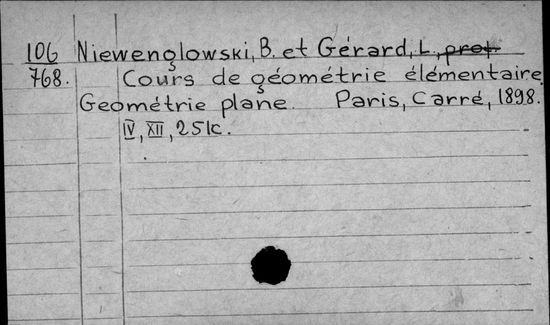 106 Niewenglowski, B. et Gérard, L., prof.
768. Cours de géométrie élémentaire
Geométrie plane. Paris, Carré, 1898.
IV, XII, 251c.